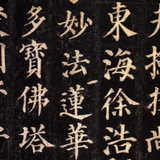 尚
東海徐浩
妙法蓮華
多寶佛塔